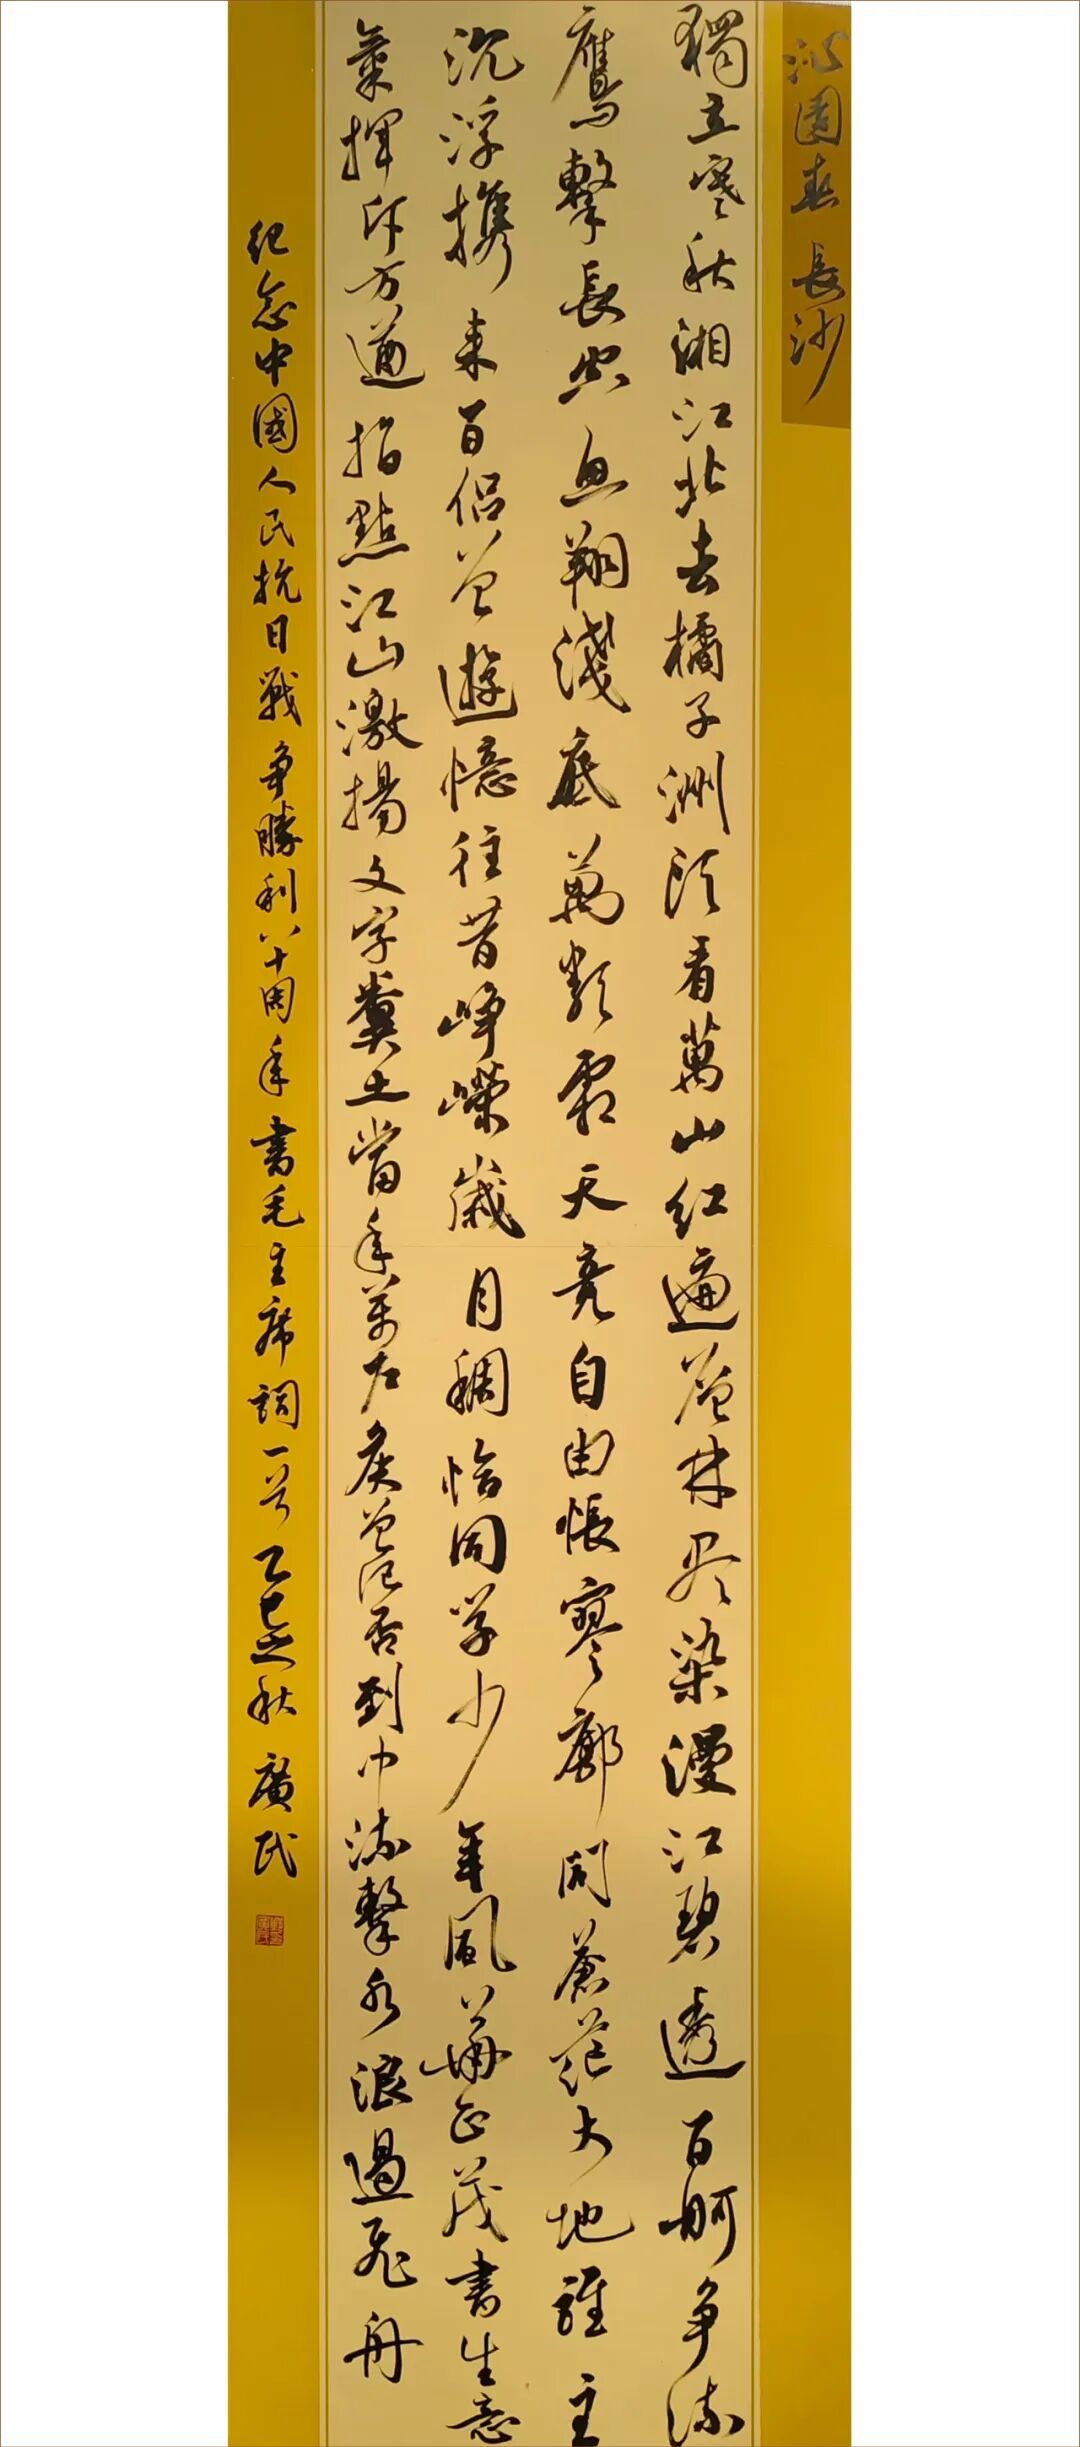 沁園春 長沙
獨立寒秋湘江北去橘子洲头看萬山紅遍层林尽染漫江碧透百舸争流
鷹擊長空鱼翔淺底萬類霜天竞自由悵寥廓问蒼茫大地誰主
沉浮攜来百侣曾遊憶往昔峥嶸歲月稠恰同学少年風華正茂書生意
氣揮斥方遒指點江山激揚文字糞土當年万户矦曾记否到中流擊水浪遏飞舟
纪念中國人民抗日戰争勝利八十周年書毛主席詞一首乙巳秋 廣民